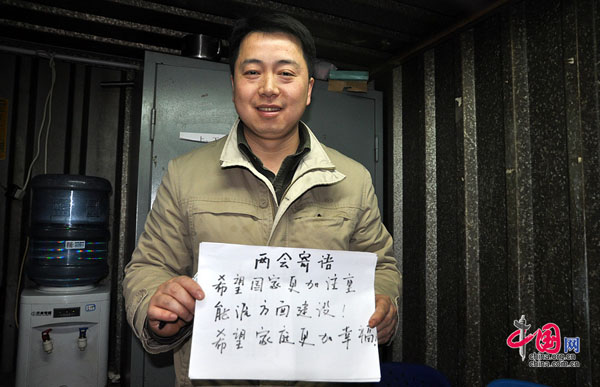 两会寄语
希望国家更加注重
能源方面建设!
希望家庭更加幸福!
中国网
china.org.cn
china.com.cn